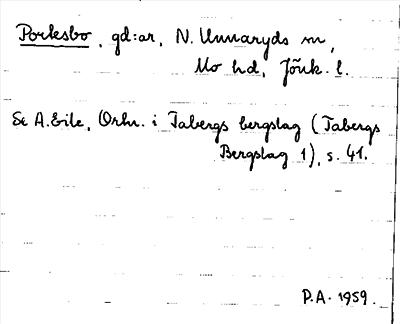 Porksbo, gd:ar, N. Unnaryds sn,
Mo hd, Jönk. l.
Se A. Eile, Ortn. i Tabergs bergslag (Tabergs
Bergslag 1), s. 41.
P.A. 1959.